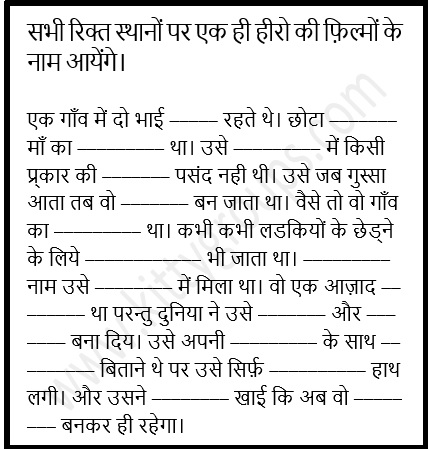 सभी रिक्त स्थानों पर एक ही हीरो की फ़िल्मों के
नाम आयेंगे।
एक गाँव में दो भाई ––––– रहते थे। छोटा –––––––
माँ का ––––––––– था। उसे ––––––––– में किसी
प्र्कार की ––––––– पसंद नही थी। उसे जब गुस्सा
आता तब वो ––––––– बन जाता था। वैसे तो वो गाँव
का ––––––––– था। कभी कभी लडकियों के छेड्ने
के लिये –––––––––––– भी जाता था। –––––––––
नाम उसे –––––––– में मिला था। वो एक आज़ाद ––
–––––– था परन्तु दुनिया ने उसे ––––––– और –––
–––– बना दिय। उसे अपनी ––––––––– के साथ ––
––––––– बिताने थे पर उसे सिर्फ़ –––––––––– हाथ
लगी। और उसने –––––––– खाई कि अब वो –––––
––– बनकर ही रहेगा।
www.kittygroups.com